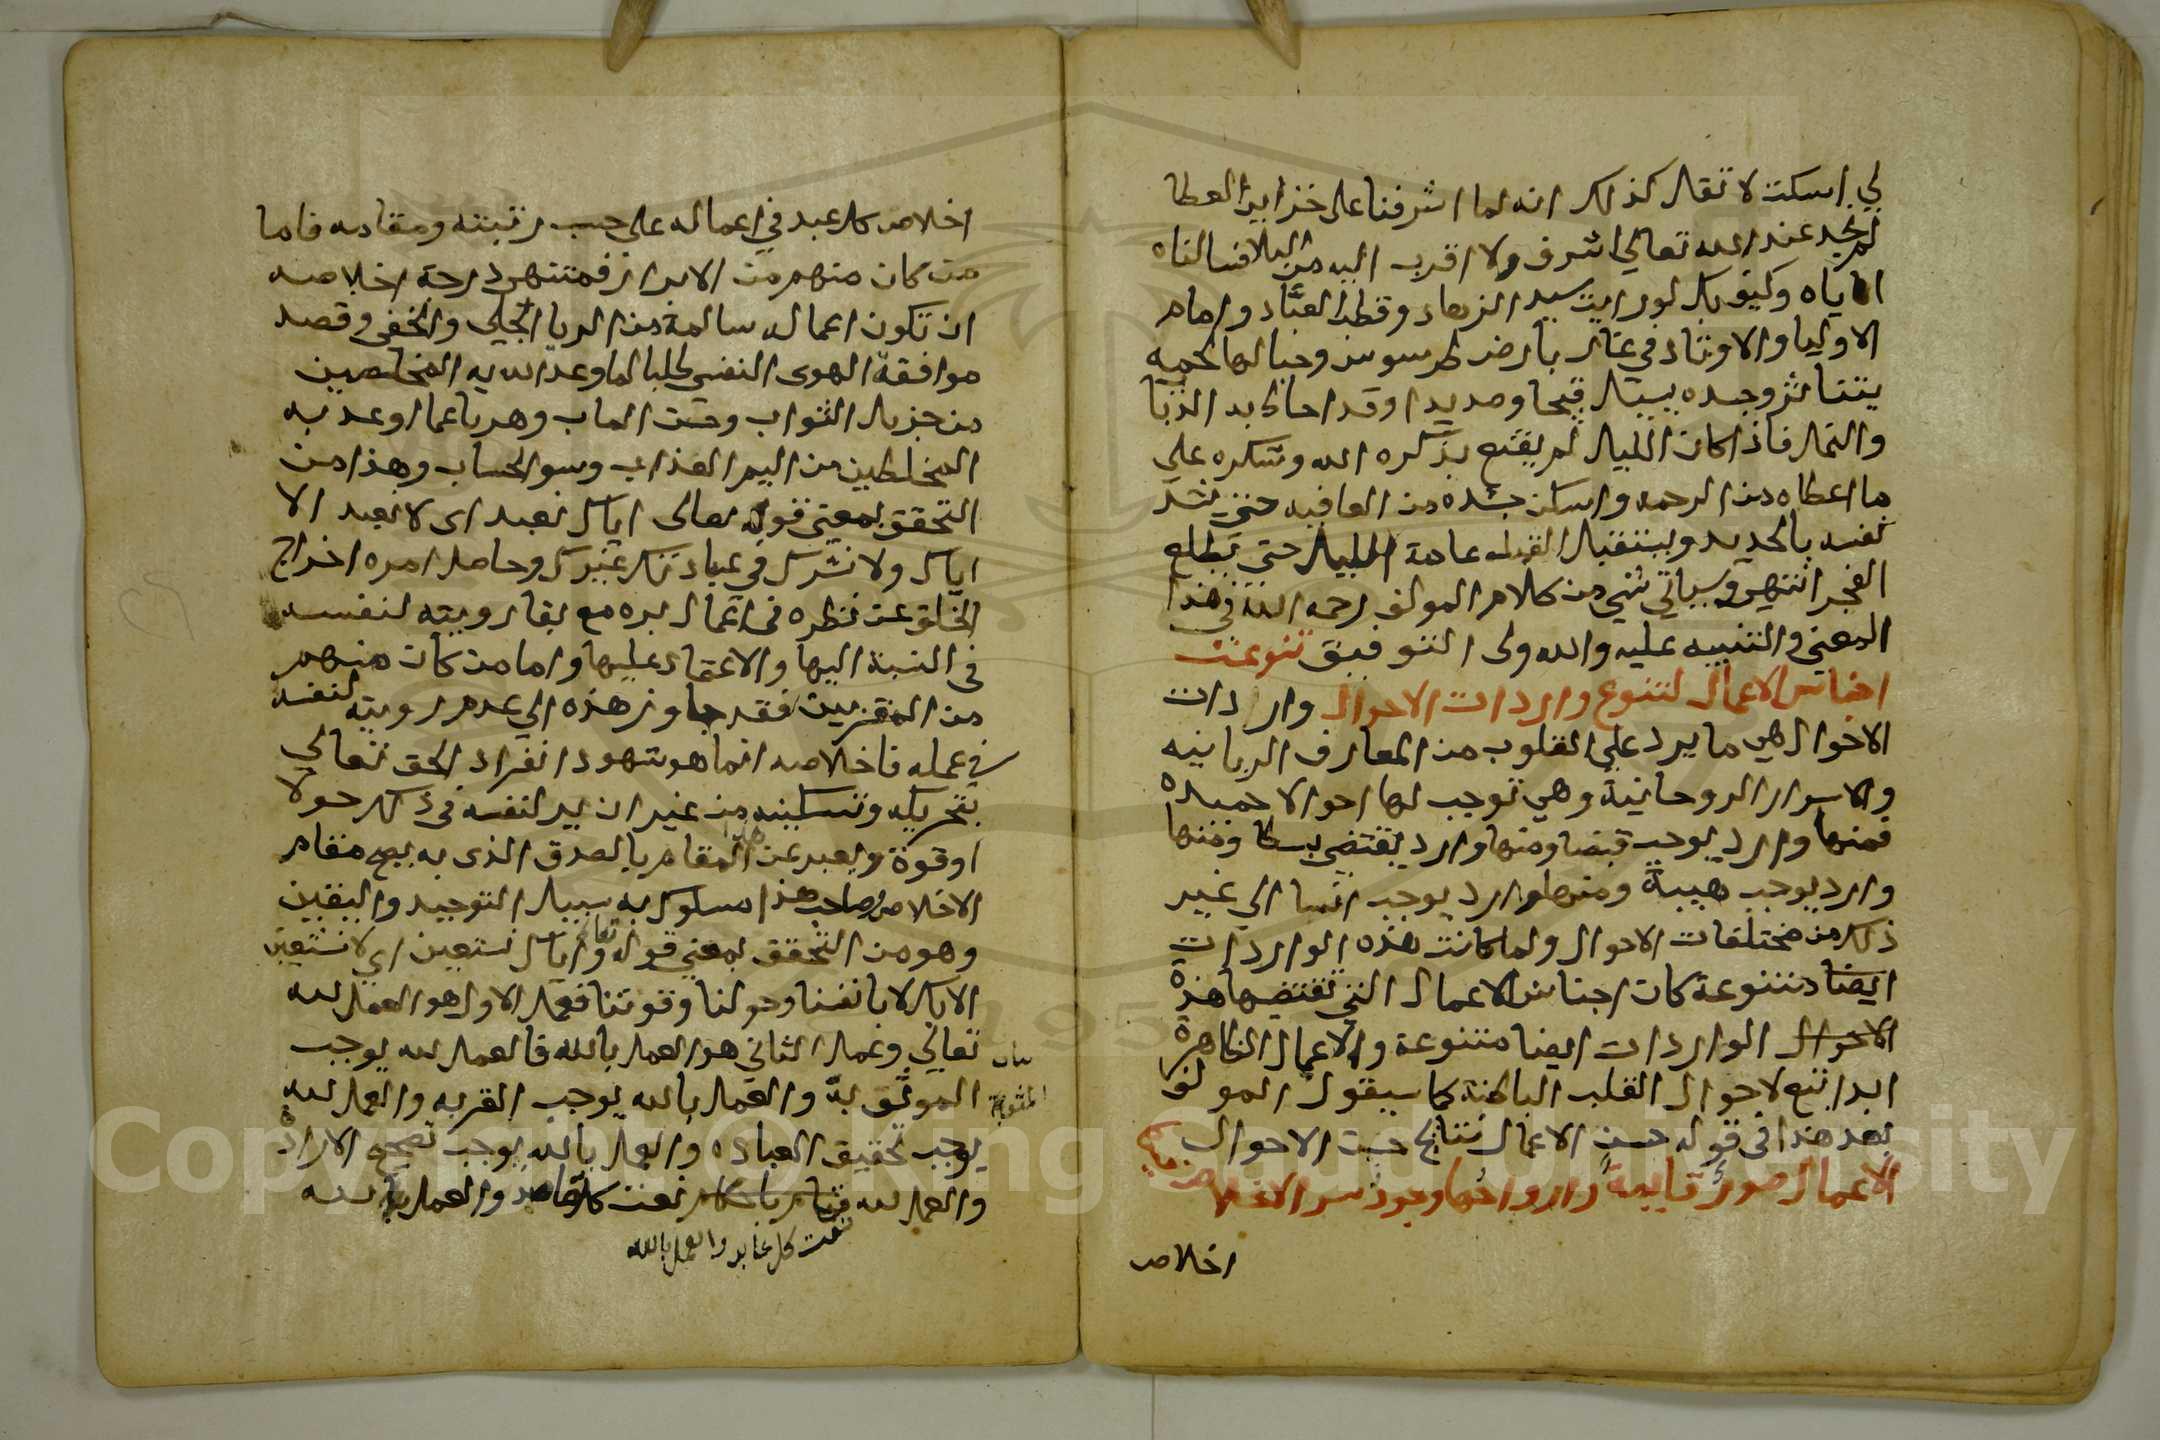 لي اسكت لا تقال كذلك انه لما اشرفنا على خزاين العطا
لم نجد عند الله تعالي اشرف ولا اقرب اليه من البلا فسالناه
اياه وكيف بك لو رايت سيد الزهاد وقطب العباد وامام
الاوليا والاوتاد في غار بارض طرسوس وجبالها لحمه
يتناثر وجسده يسيل قيحا وصديدا وقد احاط به الذباب
والنمل فاذا كان الليل لم يقنع بذكره الله وشكره علي
ما اعطاه من الرحمه واسكن جسده من العافيه حتي يشد
نفسه بالحديد ويستقبل القبله عامة الليل حتي يطلع
الفجر انتهي وسياتي شي من كلام المولف رحمه الله في هذا
المعني والتنبيه عليه والله ولى التوفيق تنوعت
اجناس الاعمال لتنوع واردات الاحوال واردات
الاحوال هي ما يرد علي القلوب من المعارف الربانيه
والاسرار الروحانية وهي توجب لها احوالا حميده
فمنها وارد يوجب قبضا ومنها وارد يقتضي بسطا ومنها
وارد يوجب هيبة ومنها وارد يوجب انسا الي غير
ذلك من مختلفات الاحوال ولما كانت هذه الواردات
ايضا متنوعة كان اجناس الاعمال التي تقتضيها هذه
الاحوال الواردات ايضا متنوعة والاعمال الظاهرة
ابدا تتبع لاحوال القلب الباطنة كما سيقول المولف
بعد هذا في قوله حسن الاعمال نتايج حسن الاحوال
الاعمال صور قايمة وارواحها وجود سر الاخلاص فيها
اخلاص
اخلاص كل عبد في اعماله على حسب رتبته ومقامه فاما
من كان منهم من الابرار فمنتهى درجة اخلاصه
ان تكون اعماله سالمة من الريا الجلي والخفي وقصد
موافقة الهوى النفسي طلبا لما وعد الله به المخلصين
من جزيل الثواب وحسن الماب وهربا عما اوعد به
المخلطين من اليم العذاب وسو الحساب وهذا من
التحقق بمعني قوله تعالى اياك نعبد اى لا نعبد الا
اياك ولا نشرك في عبادتك غيرك وحاصل امره اخراج
الخلق عن نظره في اعمال بره مع بقا رويته لنفسه
في النسبة اليها والاعتماد عليها واما من كان منهم
من المقربين فقد جاوز هذه الي عدم رويته لنفسه
في عمله فاخلاصه انما هو شهود انفراد الحق تعالي
بتحريكه وتسكينه من غير ان ير لنفسه في ذلك حولا
او قوة ويعبر عن هذا المقام بالصدق الذى به يصح مقام
الاخلاص وصاحب هذا مسلوك به سبيل التوحيد واليقين
وهو من التحقق بمعني قوله تعالى واياك نستعين اي لا نستعين
الا بك لا بانفسنا وحولنا وقوتنا فعمل الاول هو العمل لله
تعالي وعمل الثاني هو العمل بالله فالعمل لله يوجب
المثوبة
والعمل بالله يوجب القربه والعمل لله
يوجب تحقيق العباده والعمل بالله يوجب تصحيح الاراده
والعمل لله نعت كل قاصد والعمل بالله
نعت كل عابد والعمل بالله